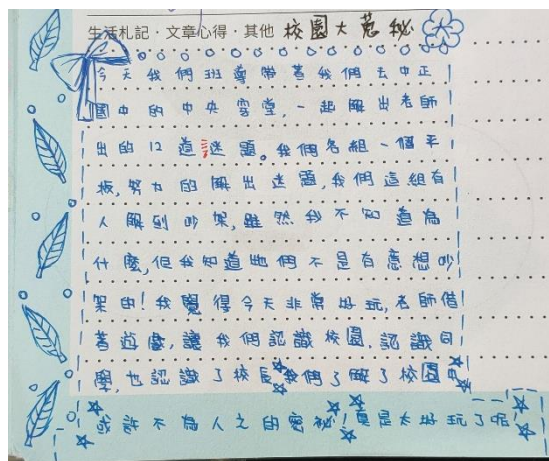 生活札記．文章心得．其他 校園大蒐秘
今天我們班導帶著我們去中正
國中的中央穿堂，一起解出老師
出的12道謎題。我們各組一個平
板，努力的解出迷題，我們這組有
人解到吵架，雖然我不知道為
什麼，但我知道他們不是有意想吵
架的！我覺得今天非常好玩，老師借
著遊戲，讓我們認識校園，認識同
學，也認識了校長，我們了解了校園中
或許不為人之的密祕！真是太好玩了呢